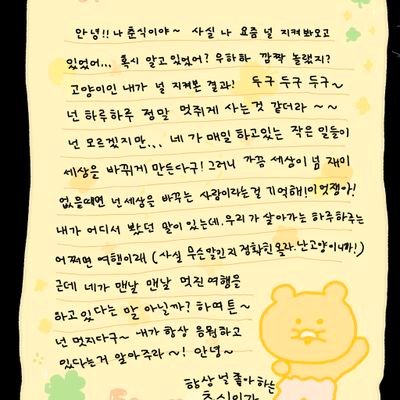 안녕!! 나 춘식이야~ 사실 나 요즘 널 지켜봐오고
있었어... 혹시 알고있었어? 우하하 깜짝 놀랬지?
고양이인 내가 널 지켜본 결과! 두구 두구 두구~
넌 하루하루 정말 멋쥐게 사는것 같더라 ~ ~
넌 모르겠지만... 네가 매일 하고있는 작은 일들이
세상을 바꾸게 만든다구! 그러니 가끔 세상이 넘 재미
없을때면 넌 세상을 바꾸는 사람이라는걸 기억해! 이 멋쟁아!
내가 어디서 봤던 말이 있는데, 우리가 살아가는 하루하루는
어쩌면 여행이래 (사실 무슨말인지 정확힌 몰라. 난 고양이니까!)
근데 네가 맨날 맨날 멋진 여행을
하고있다는 말 아닐까? 하여튼~
넌 멋지다구~ 내가 항상 응원하고
있다는거 알아주라~! 안녕~
항상 널 좋아하는
춘식이가